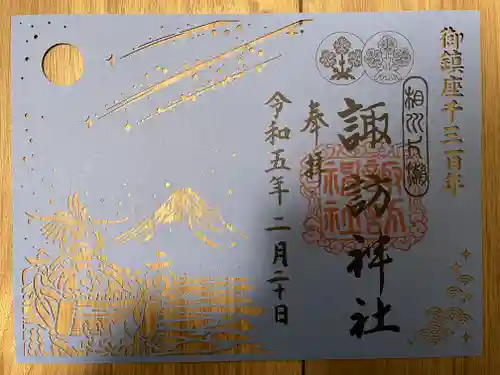 御鎮座千三百年
相州片瀬
諏訪神社
奉拝
令和五年二月二十日